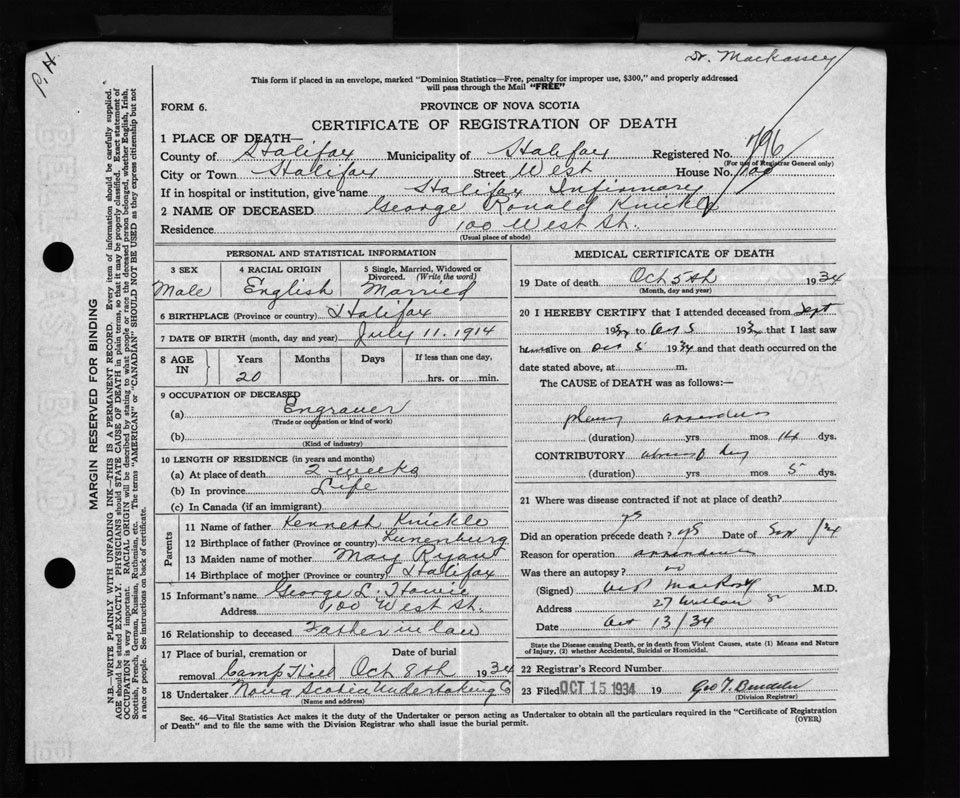 P. H.
Dr. Mackassey
This form if placed in an envelope, marked "Dominion Statistics—Free, penalty for improper use, $300," and properly addressed
will pass through the Mail "FREE"
FORM 6.
PROVINCE OF NOVA SCOTIA
CERTIFICATE OF REGISTRATION OF DEATH
1 PLACE OF DEATH—
County of Halifax Municipality of Halifax Registered No. 796
(For use of Registrar General only)
City or Town Halifax Street West House No. 100
If in hospital or institution, give name Halifax Infirmary
2 NAME OF DECEASED George Ronald Knickle
Residence 100 West St.
(Usual place of abode)
PERSONAL AND STATISTICAL INFORMATION
3 SEX
Male
4 RACIAL ORIGIN
English
5 Single, Married, Widowed or
Divorced. (Write the word)
Married
6 BIRTHPLACE (Province or country) Halifax
7 DATE OF BIRTH (month, day and year) July 11. 1914
8 AGE IN
Years Months Days If less than one day,
20 hrs. or min.
9 OCCUPATION OF DECEASED
(a) Engraver
(Trade or occupation or kind of work)
(b)
(Kind of industry)
10 LENGTH OF RESIDENCE (in years and months)
(a) At place of death 2 weeks
(b) In province Life
(c) In Canada (if an immigrant)
Parents
11 Name of father Kenneth Knickle
12 Birthplace of father (Province or country) Lunenburg
13 Maiden name of mother May Ryan
14 Birthplace of mother (Province or country) Halifax
15 Informant's name George L. Howie
Address 100 West St.
16 Relationship to deceased Father in law
17 Place of burial, cremation or Date of burial
removal Camp Hill Oct 8th 1934
18 Undertaker Nova Scotia Undertaking Co
(Name and address)
MEDICAL CERTIFICATE OF DEATH
19 Date of death Oct 5th 1934
(Month, day and year)
20 I HEREBY CERTIFY that I attended deceased from Sept
1934 to Oct 5 1934 that I last saw
him alive on Oct 5 1934 and that death occurred on the
date stated above, at m.
The CAUSE of DEATH was as follows:—
(duration) yrs mos 14 dys.
CONTRIBUTORY
(duration) yrs mos 5 dys.
21 Where was disease contracted if not at place of death?
yes
Did an operation precede death? yes Date of Sep /34
Reason for operation
Was there an autopsy? no
(Signed) M.D.
Address 27 Willow St
Date Oct 13/34
State the Disease causing Death, or in death from Violent Causes, state (1) Means and Nature
of Injury, (2) whether Accidental, Suicidal or Homicidal.
22 Registrar's Record Number
23 Filed OCT 15 1934 19
(Division Registrar)
Sec. 46—Vital Statistics Act makes it the duty of the Undertaker or person acting as Undertaker to obtain all the particulars required in the "Certificate of Registration
of Death" and to file the same with the Division Registrar who shall issue the burial permit.
(OVER)
MARGIN RESERVED FOR BINDING
N.B.—WRITE PLAINLY WITH UNFADING INK—THIS IS A PERMANENT RECORD. Every item of information should be carefully supplied.
AGE should be stated EXACTLY. PHYSICIANS should STATE CAUSE OF DEATH in plain terms, so that it may be properly classified. Exact statement of
OCCUPATION is very important. RACIAL ORIGIN will be described by stating to what people or race the deceased person belonged, whether English, Irish,
Scottish, French, German, Russian, Ruthenian, etc. The terms "AMERICAN" or "CANADIAN" SHOULD NOT BE USED as they express citizenship but not
a race or people. See instructions on back of certificate.